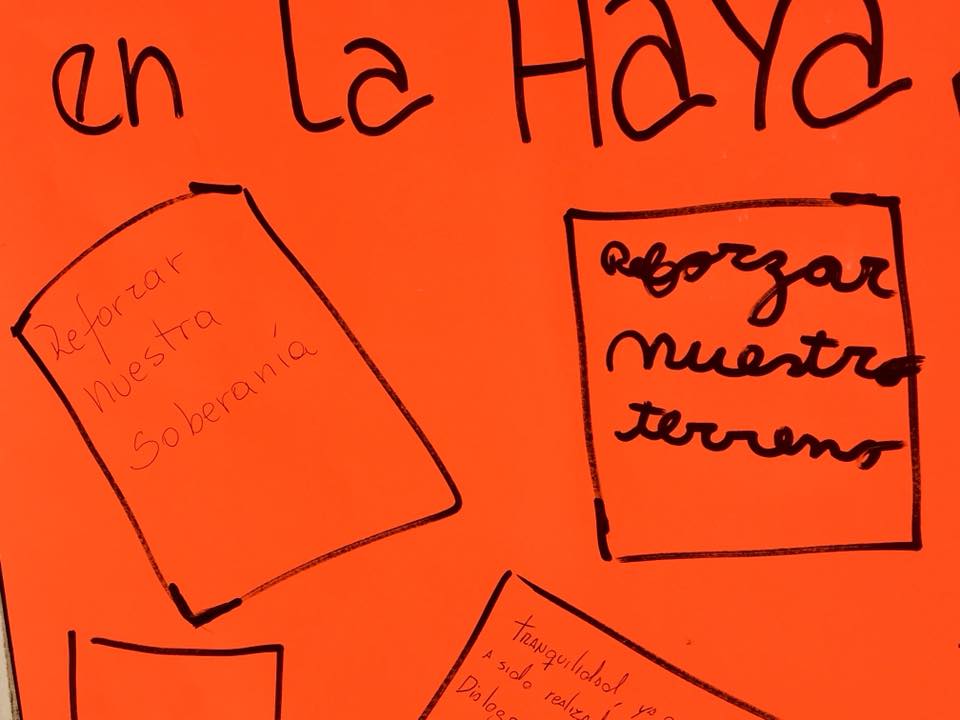 en la HaYa
Reforzar
nuestra
Soberanía
Reforzar
nuestro
terreno
TRANQUILIDAD, ya
A sido